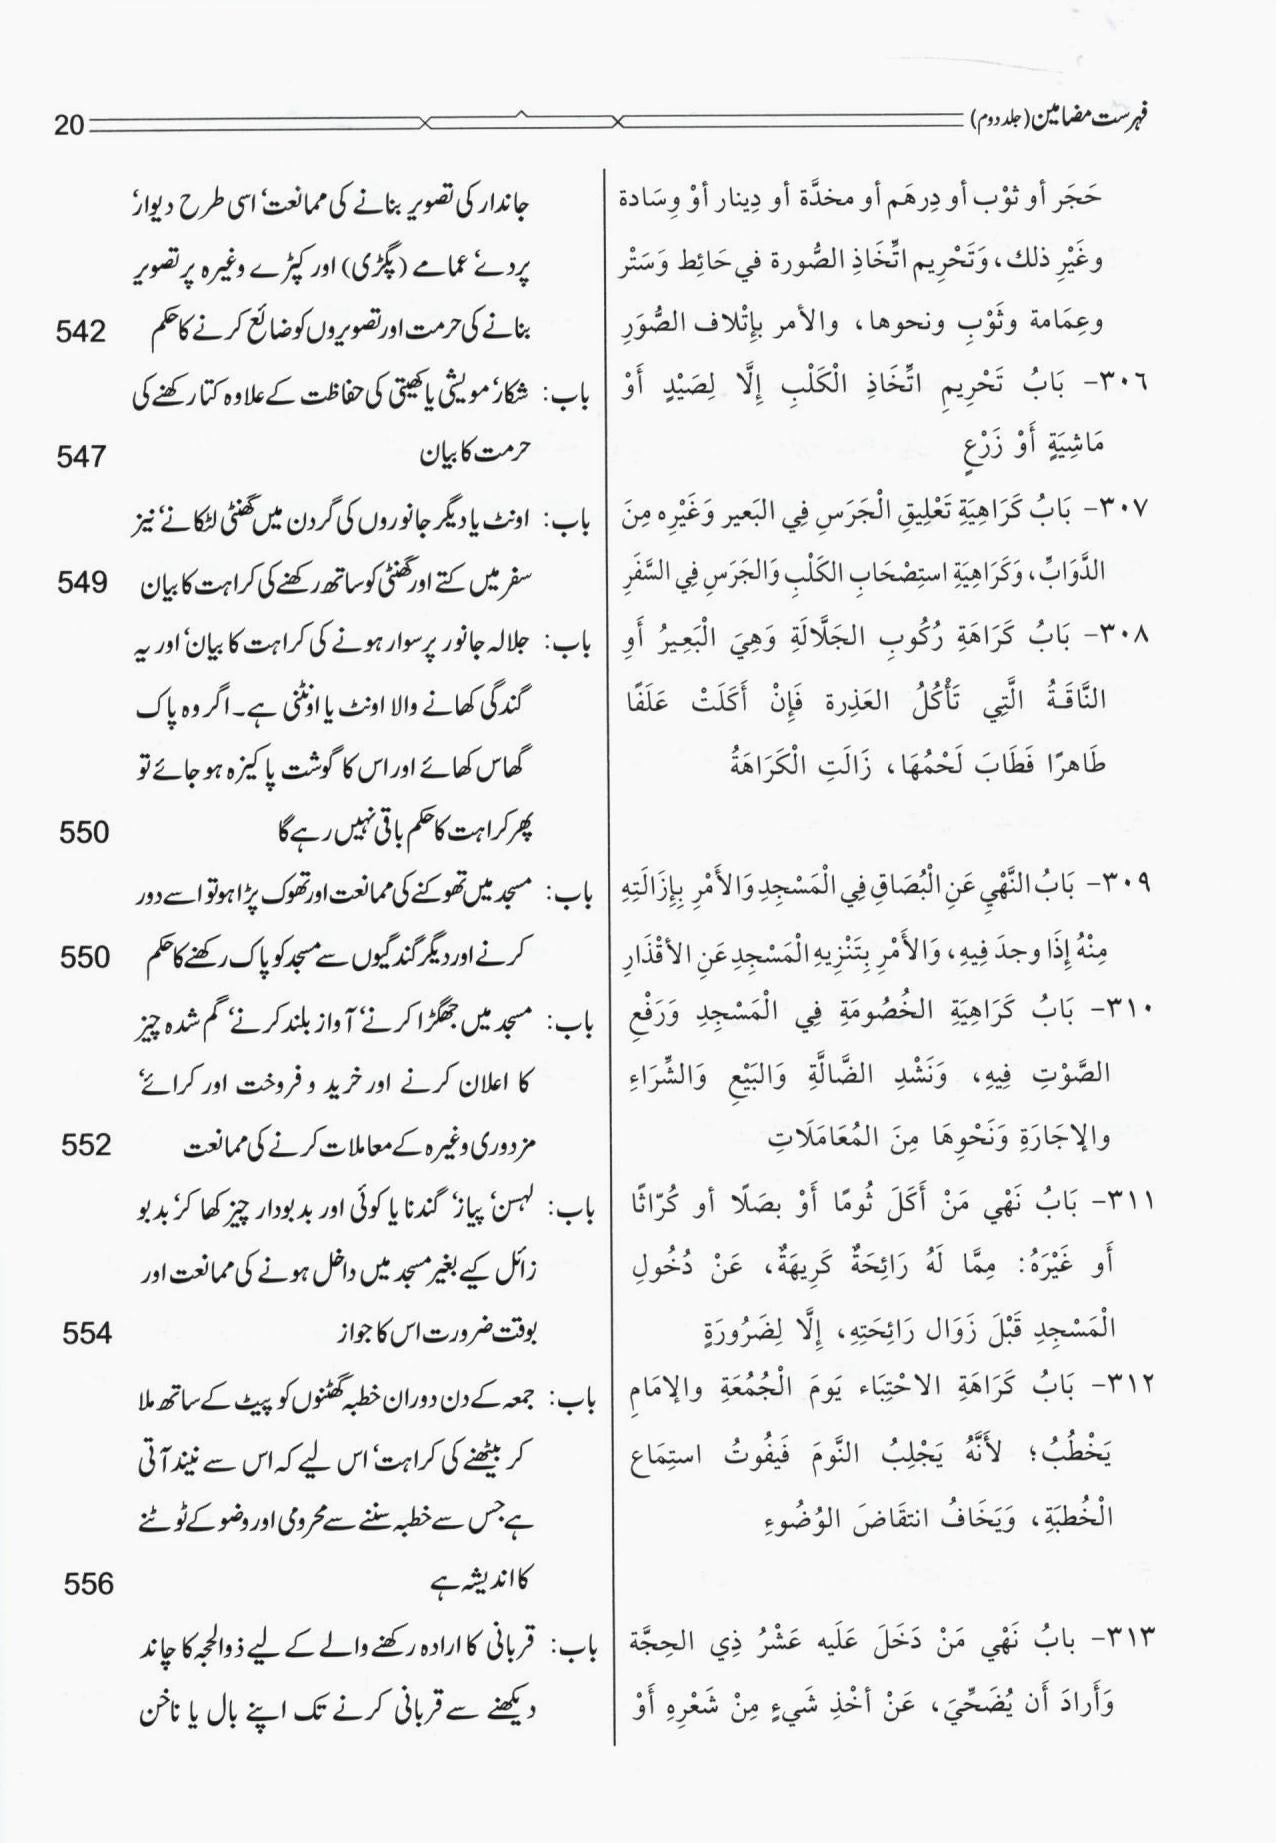 فہرست مضامین (جلد دوم) 20
حَجَر أو ثوْب أو دِرهَم أو مخدَّة أو دِينار أوْ وِسَادة
وغَيْرِ ذلك، وَتَحْرِيم اتِّخَاذِ الصُّورة في حَائِط وَسَتْر
وعِمَامة وثَوْبِ ونحوها، والأمر بإتْلاف الصُّوَرِ
٣٠٦- بَابُ تَحْرِيمِ اتِّخَاذِ الْكَلْبِ إِلَّا لِصَيْدٍ أَوْ
مَاشِيَةٍ أَوْ زَرْعٍ
٣٠٧- بَابُ كَرَاهِيَةِ تَعْلِيقِ الْجَرَسِ فِي البَعير وَغَيْرِه مِنَ
الدَّوَابِّ، وَكَرَاهِيَةِ استِصْحَابِ الكَلْبِ وَالجَرَسِ فِي السَّفَرِ
٣٠٨- بَابُ كَرَاهَةِ رُكُوبِ الجَلَّالَةِ وَهِيَ الْبَعِيرُ أَوِ
النَّاقَةُ الَّتِي تَأْكُلُ العَذِرة فَإِنْ أَكَلَتْ عَلَفًا
طَاهرًا فَطَابَ لَحْمُهَا، زَالَتِ الْكَرَاهَةُ
٣٠٩- بَابُ النَّهْيِ عَنِ الْبُصَاقِ فِي الْمَسْجِدِ وَالأَمْرِ بِإِزَالَتِهِ
مِنْهُ إِذَا وجدَ فِيهِ، وَالأَمْرِ بِتَنْزِيهِ الْمَسْجِدِ عَنِ الأَقْذَارِ
٣١٠- بَابُ كَرَاهِيَةِ الخُصُومَةِ فِي الْمَسْجِدِ وَرَفْعِ
الصَّوْتِ فِيهِ، وَنَشْدِ الضَّالَّةِ وَالبَيْعِ وَالشِّرَاءِ
والإجَارَةِ وَنَحْوِهَا مِنَ المُعَامَلَاتِ
٣١١- بَابُ نَهْي مَنْ أَكَلَ ثُومًا أَوْ بصَلًا أو كُرّاثًا
أَو غَيْرَهُ: مِمَّا لَهُ رَائِحَةٌ كَرِيهَةٌ، عَنْ دُخُولِ
الْمَسْجِدِ قَبْلَ زَوَال رَائِحَتِهِ، إِلَّا لِضَرُورَةٍ
٣١٢- بَابُ كَرَاهَةِ الاحْتِبَاء يَومَ الْجُمُعَةِ والإمَامِ
يَخْطُبُ؛ لأَنَّهُ يَجْلِبُ النَّومَ فَيفُوتُ استِمَاع
الْخُطبَةِ، وَيَخَافُ انتقَاضَ الوُضُوءِ
٣١٣- بابُ نَهْي مَنْ دَخَلَ عَلَيه عَشْرُ ذِي الحِجَّة
وَأَرادَ أَن يُضَحِّيَ، عَنْ أخْذِ شَيءٍ مِنْ شَعْرِهِ أَوْ
جاندار کی تصویر بنانے کی ممانعت، اسی طرح دیوار،
پردے، عمامے (پگڑی) اور کپڑے وغیرہ پر تصویر
بنانے کی حرمت اور تصویروں کو ضائع کرنے کا حکم 542
باب: شکار، مویشی یا کھیتی کی حفاظت کے علاوہ کتا رکھنے کی
حرمت کا بیان 547
باب: اونٹ یا دیگر جانوروں کی گردن میں گھنٹی لٹکانے، نیز
سفر میں کتے اور گھنٹی کو ساتھ رکھنے کی کراہت کا بیان 549
باب: جلالہ جانور پر سوار ہونے کی کراہت کا بیان، اور یہ
گندگی کھانے والا اونٹ یا اونٹنی ہے۔ اگر وہ پاک
گھاس کھائے اور اس کا گوشت پاکیزہ ہو جائے تو
پھر کراہت کا حکم باقی نہیں رہے گا 550
باب: مسجد میں تھوکنے کی ممانعت اور تھوک پڑا ہو تو اسے دور
کرنے اور دیگر گندگیوں سے مسجد کو پاک رکھنے کا حکم 550
باب: مسجد میں جھگڑا کرنے، آواز بلند کرنے، گم شدہ چیز
کا اعلان کرنے اور خرید و فروخت اور کرائے،
مزدوری وغیرہ کے معاملات کرنے کی ممانعت 552
باب: لہسن، پیاز، گندنا یا کوئی اور بدبودار چیز کھا کر، بدبو
زائل کیے بغیر مسجد میں داخل ہونے کی ممانعت اور
بوقت ضرورت اس کا جواز 554
باب: جمعہ کے دن دوران خطبہ گھٹنوں کو پیٹ کے ساتھ ملا
کر بیٹھنے کی کراہت، اس لیے کہ اس سے نیند آتی
ہے جس سے خطبہ سننے سے محرومی اور وضو کے ٹوٹنے
کا اندیشہ ہے 556
باب: قربانی کا ارادہ رکھنے والے کے لیے ذوالحجہ کا چاند
دیکھنے سے قربانی کرنے تک اپنے بال یا ناخن